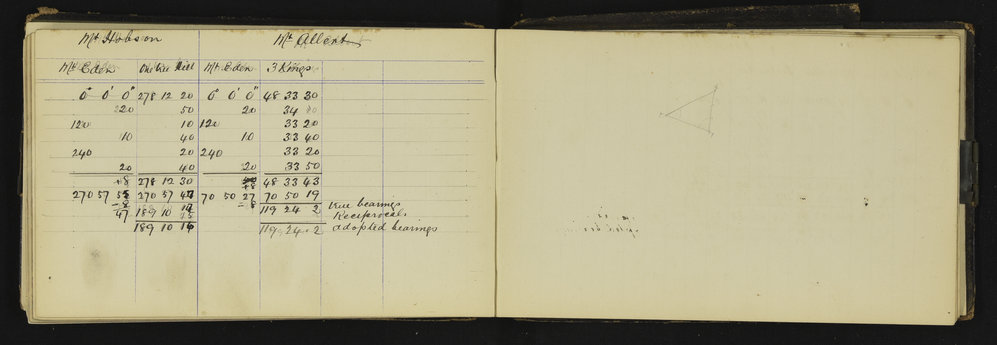 Mt Hobson Mt Albert
Mt Eden One Tree Hill Mt Eden 3 Kings
0° 0' 0" 278 12 20 0° 0' 0" 48 33 30
20 50 20 34
120 10 120 33 20
10 40 10 33 40
240 20 240 33 20
20 40 20 33 50
+8 278 12 30 +8 48 33 43
270 57 270 57 70 50 27 70 50 19
-8 189 10 -8 119 24 2 true bearings
47 Reciprocals
189 10 119 24 2 adopted bearings